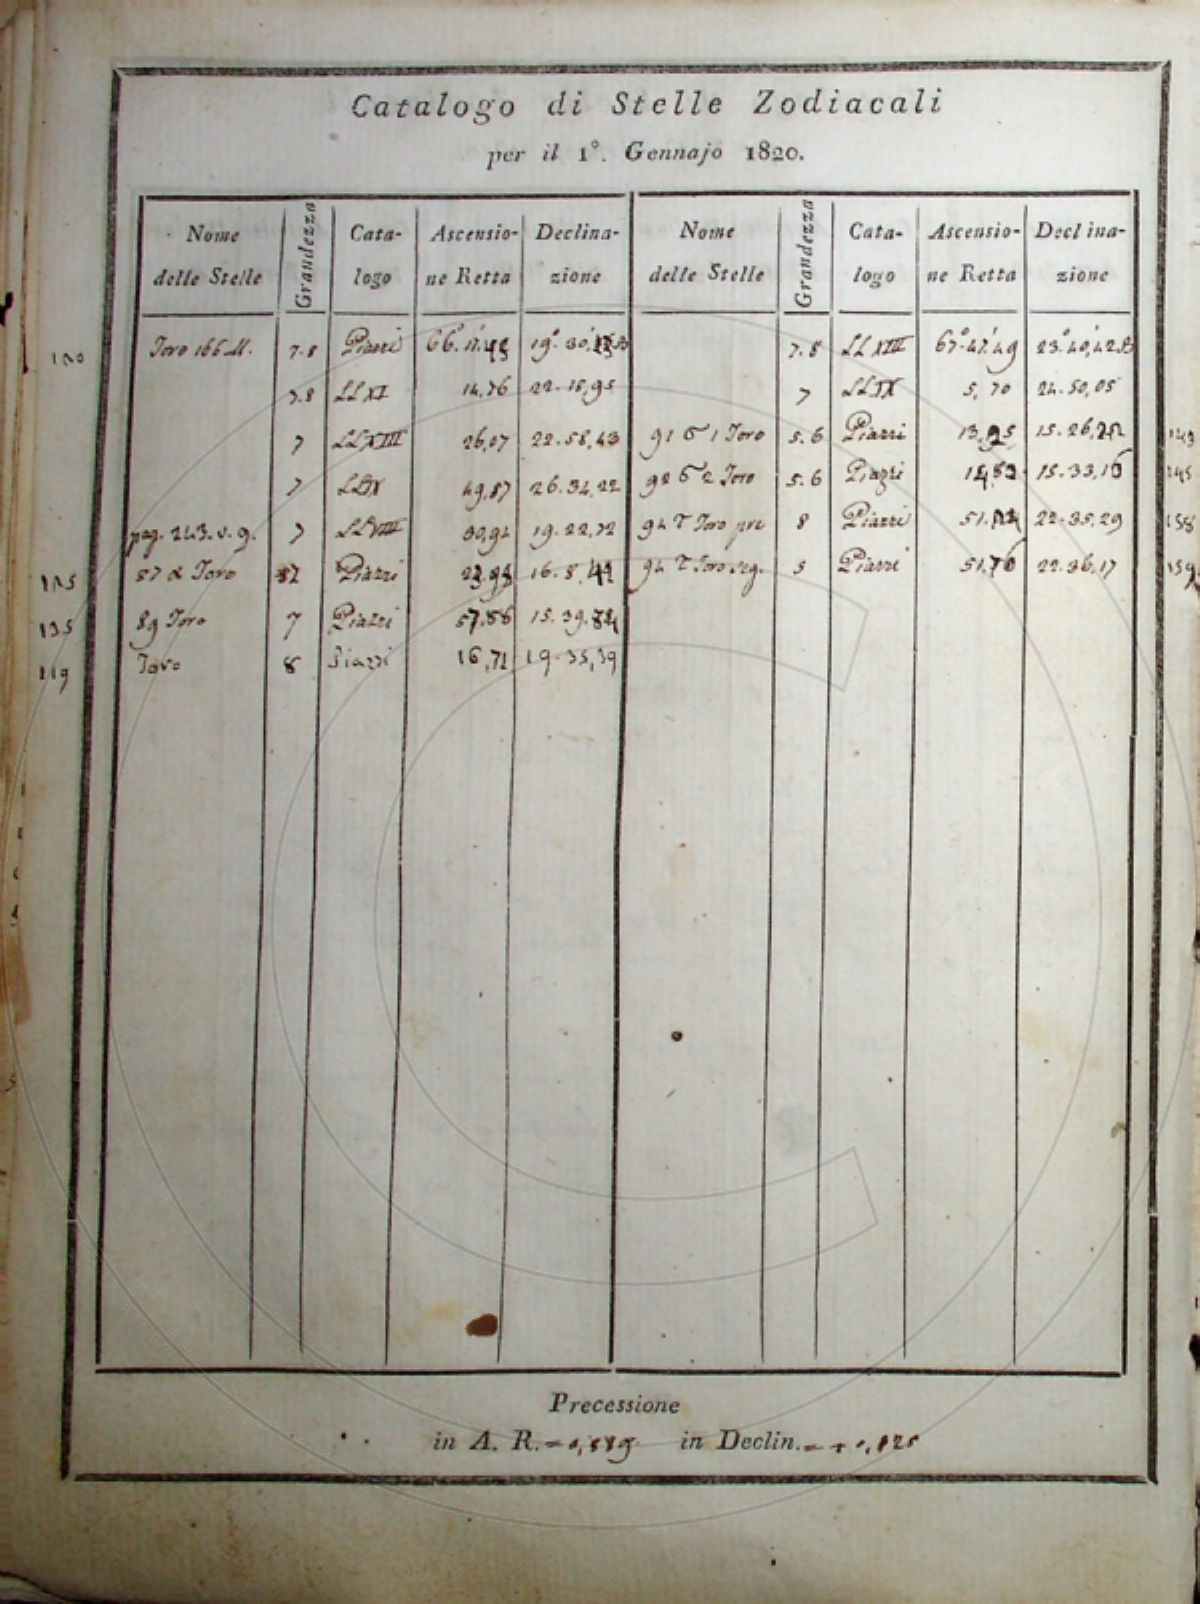 Catalogo di Stelle Zodiacali
per il 1°. Gennajo 1820.
Nome delle Stelle Grandezza Catalogo Ascensione Retta Declinazione
Nome delle Stelle Grandezza Catalogo Ascensione Retta Declinazione
Toro 166 M. 7.8 Piazzi 19°.30
7.8 LL XI 14,76 22.18,95
7 LL XIII 26,07 22.58,43
7 LL IX 49,87 26.34,22
pag. 243. v. 9. 7 LL VIII 30,92 19.22,72
87 α Toro Piazzi 16.8
135 89 Toro 7 Piazzi 57.88 15.39
119 Toro 8 Piazzi 16,71 19.35,39
7.8 LL XIII 67°.47,49 23°.40,42 B
7 LL IX 5,70 24.50,05
91 σ 1 Toro 5.6 Piazzi 15.26
92 σ 2 Toro 5.6 Piazzi 15.33,16 145
94 τ Toro pre 8 Piazzi 22.35,29 158
94 τ Toro seg. 5 Piazzi 51,76 22.36,17 159
Precessione
in A. R. in Declin.